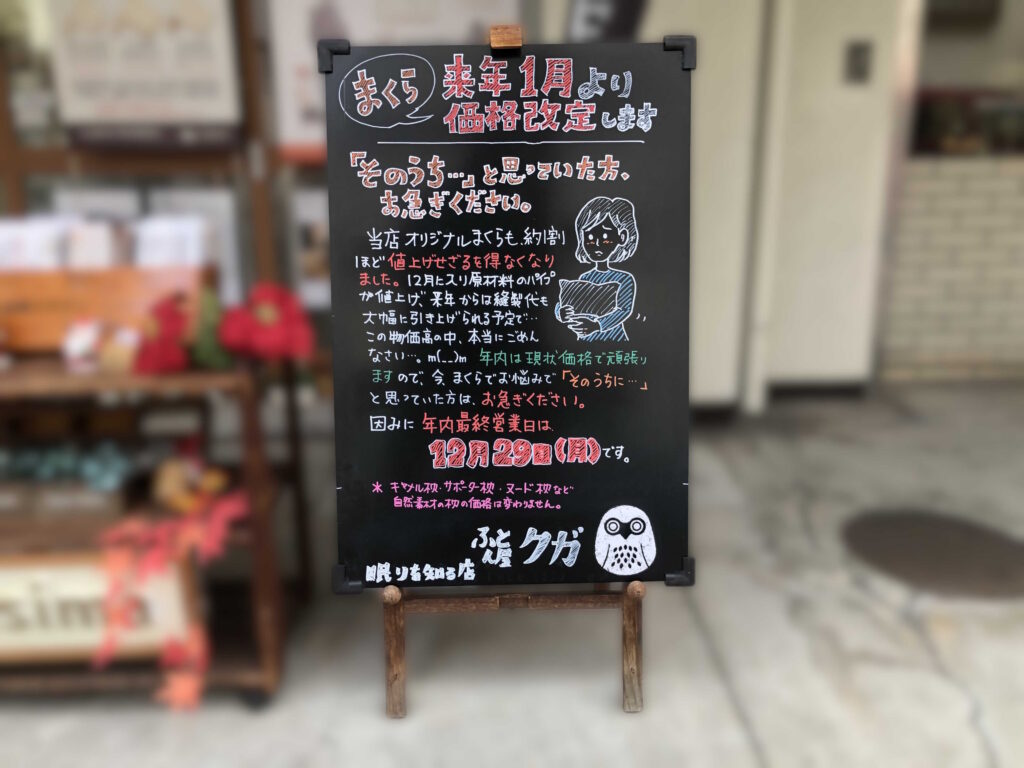 まくら
来年1月より
価格改定します
「そのうち…」と思っていた方、
お急ぎください。
当店オリジナルまくらも、約1割
ほど値上げせざるを得なくなり
ました。12月に入り原材料のパイプ
が値上げ、来年からは縫製代も
大幅に引き上げられる予定で…
この物価高の中、本当にごめん
なさい…。m(__)m 年内は現状価格で頑張り
ますので、今、まくらでお悩みで「そのうちに…」
と思っていた方は、お急ぎください。
因みに年内最終営業日は、
12月29日(月)です。
* キャメル枕・サポーター枕・ヌード枕など
自然素材の枕の価格は変わりません。
ふとん屋クガ
眠りを知る店
sima